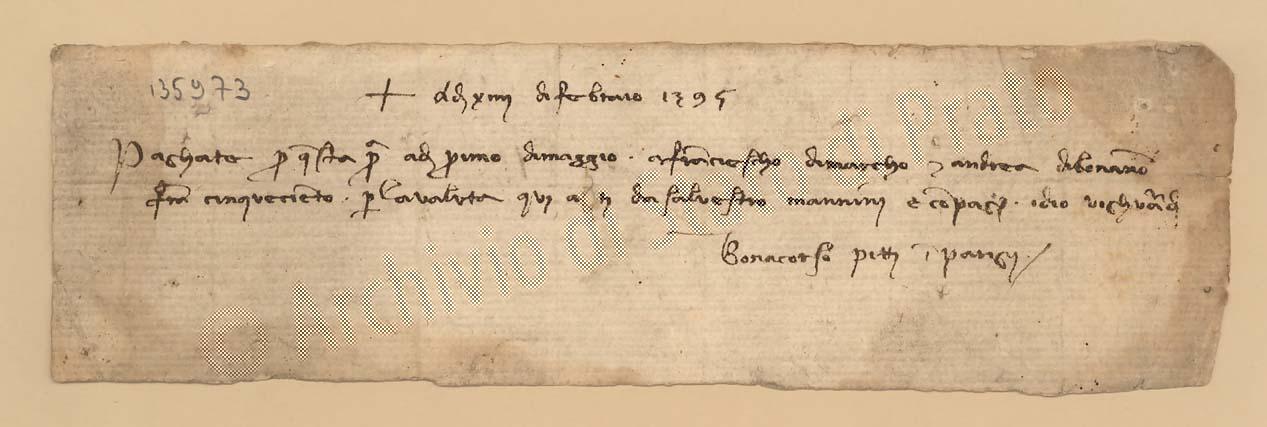 135973
+ Adj xiiij di febraio 1395
Paghate p questa pa adj primo di maggio · a franciescho di marcho & andrea di bonano
fra cinqueciento · p la valuta qui a nj da salvestro mannini e conpag · idio vi ghuardi
Bonacorso pitti i parigi /
© Archivio di Stato di Prato